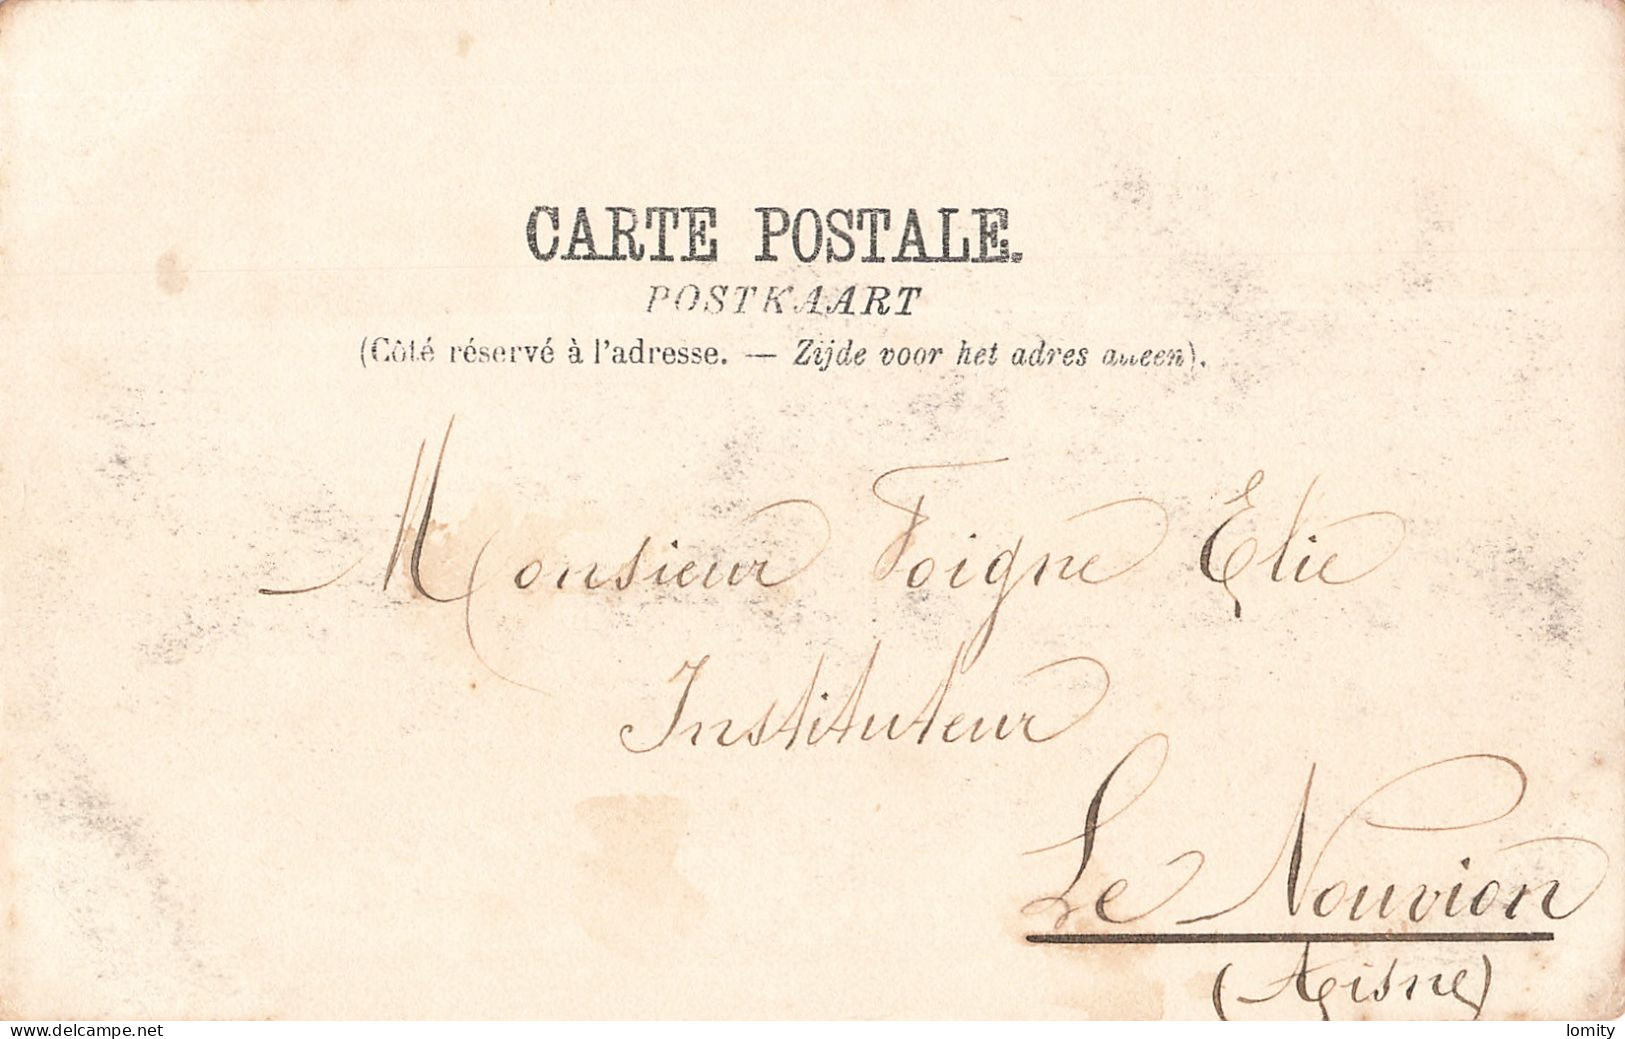 CARTE POSTALE.
POSTKAART
(Côté réservé à l'adresse. — Zijde voor het adres alleen).
Monsieur Foigne Elie
Instituteur
Le Nouvion
(Aisne)
www.delcampe.net
lomity